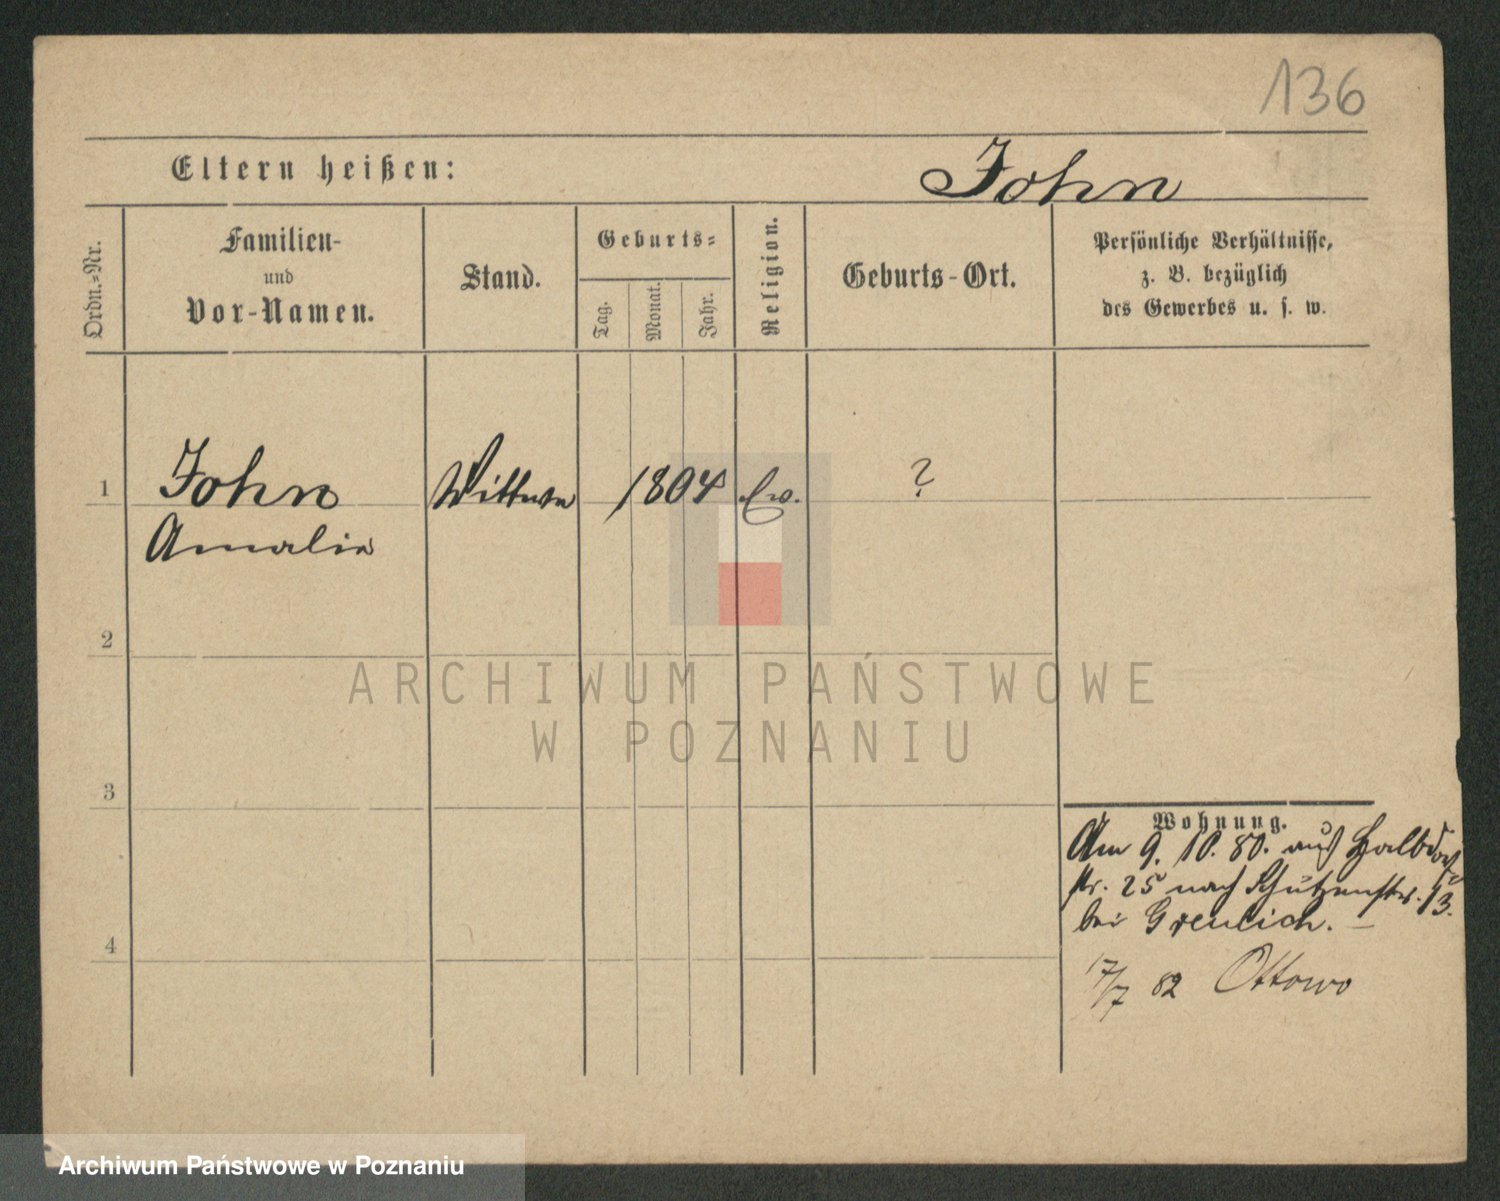 136
Eltern heißen:
John
Ordn.-Nr.
Familien-
und
Vor-Namen.
Stand.
Geburts-
Tag.
Monat.
Jahr.
Religion.
Geburts-Ort.
Persönliche Verhältnisse,
z. B. bezüglich
des Gewerbes u. s. w.
1 John Wittwe 1804 Ev. ?
Amalie
2
ARCHIWUM PAŃSTWOWE
W POZNANIU
3
Wohnung.
Am 9. 10. 80. aus Halbdorf
str. 25 nach Schützenstr. 13.
bei Greulich. —
4
17/7 82 Ottowo
Archiwum Państwowe w Poznaniu